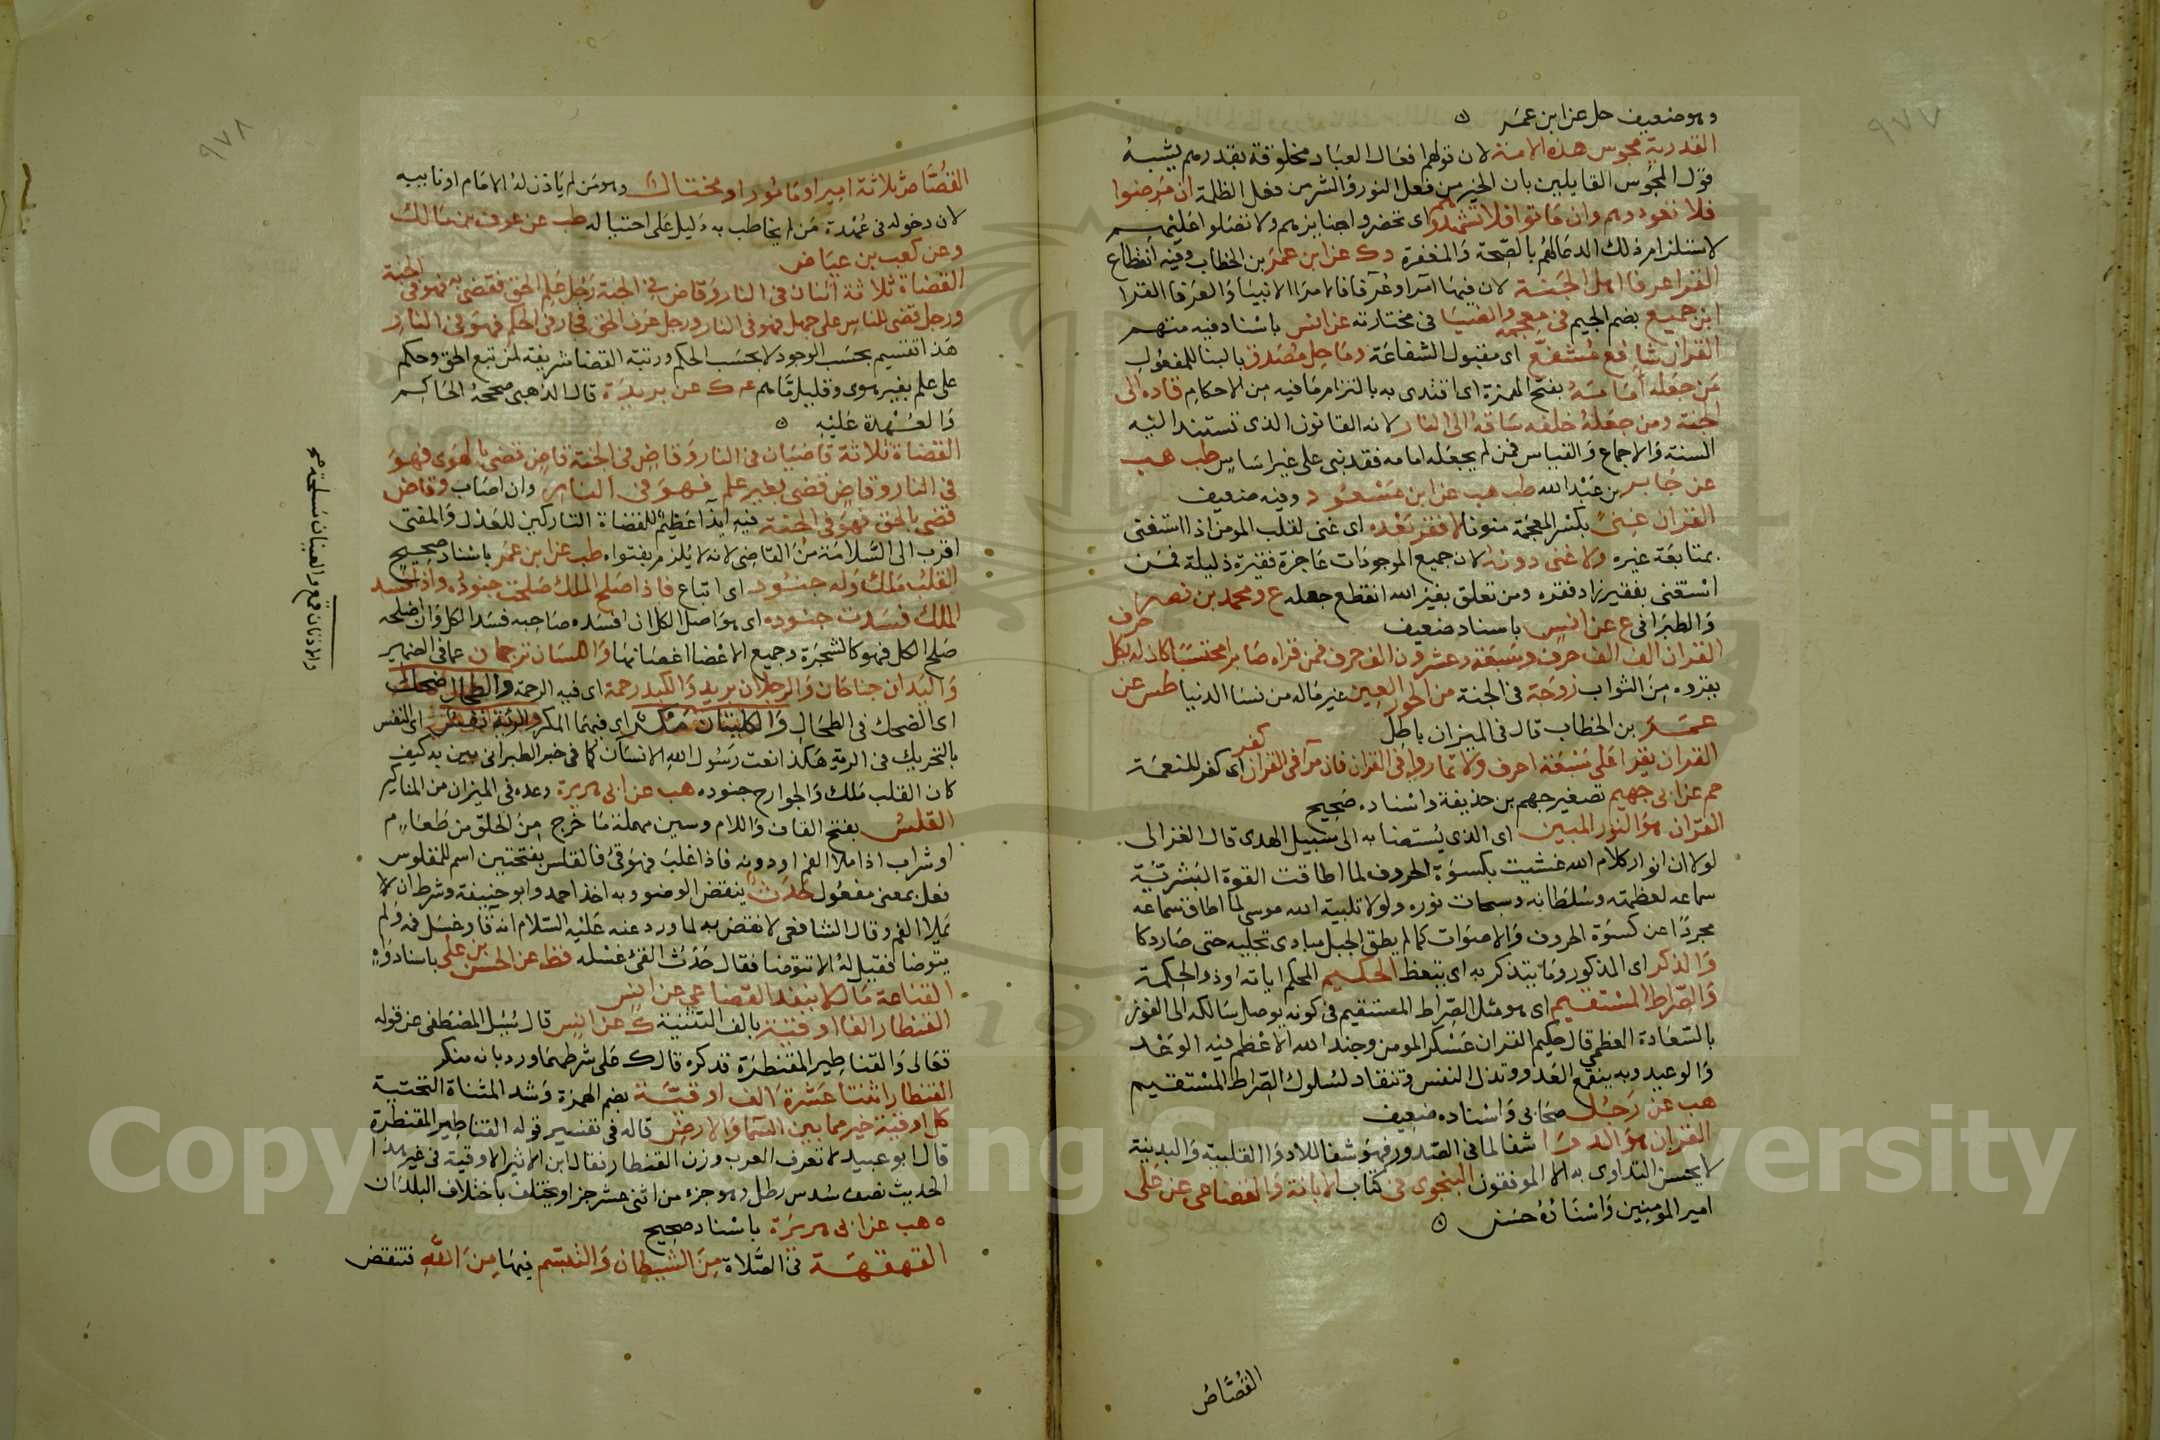 ٩٧٧
وهو ضعيف حل عن ابن عمر
القدرية مجوس هذه الامة لان قولهم افعال العباد مخلوقة بقدرهم يشبه
قول المجوس القايلين بان الخير من فعل النور والشر من فعل الظلمة ان مرضوا
فلا تعودوهم وان ماتوا فلا تشهدوهم اى تحضروا جنايزهم ولا تصلوا عليهم
لاستلزام ذلك الدعا لهم بالصحة والمغفرة دك عن ابن عمر بن الخطاب وفيه انقطاع
القرا عرفا اهل الجنة لان فيها امرا وعرفا فالامرا الانبيا والعرفا القرا
ابن جميع بضم الجيم فى معجمه والضيا فى مختارته عن انس باسناد فيه متهم
القران شافع مشفع اى مقبول الشفاعة وماحل مصدق بالبنا للمفعول
من جعله أمامه بفتح الهمزة اى اقتدى به بالتزام ما فيه من الاحكام قاده الى
الجنة ومن جعله خلفه ساقه الى النار لانه القانون الذى تستند اليه
السنة والاجماع والقياس فمن لم يجعله امامه فقد بنى على غير اساس طب هب
عن جابر بن عبد الله طب هب عن ابن مسعود وفيه ضعيف
القران غنى بكسر المعجمة منونا لا فقر بعده اى غنى لقلب المومن اذا استغنى
بمتابعة غيره ولا غنى دونه لان جميع الموجودات عاجزة فقيرة ذليلة فمن
استغنى بفقير زاد فقره ومن تعلق بغير الله انقطع حبله ع ومحمد بن نصر
والطبرانى ع عن انس باسناد ضعيف
القران الف الف حرف وسبعة وعشرون الف حرف فمن قراه صابرا محتسبا كان له بكل حرف
يقروه من الثواب زوجة فى الجنة من الحور العين غير ماله من نسا الدنيا طس عن
عمر بن الخطاب قال فى الميزان باطل
القران يقرا على سبعة احرف ولا تماروا فى القران فان مرآ فى القران كفر اى كفر للنعمة
حم عن ابى جهيم تصغير جهم بن حذيفة واسناده صحيح
القران هو النور المبين اى الذى يستضا به الى سبيل الهدى قال الغزالى
لولا ان انوار كلام الله غشيت بكسوة الحروف لما اطاقت القوة البشرية
سماعه لعظمته وسلطانه وسبحات نوره ولولا تلبية الله موسى لما اطاق سماعه
مجردا عن كسوة الحروف والاصوات كما لم يطق الجبل مبادى تجليه حتى صار دكا
والذكر اى المذكور وما يتذكر به اى يتعظ الحكيم المحكم اياته او ذو الحكمة
والصراط المستقيم اى هو مثل الصراط المستقيم فى كونه يوصل سالكه الى الفوز
بالسعادة العظمى قال حكيم القران عسكر المومن وجند الله الاعظم فيه الوعد
والوعيد وبه ينقمع العدو وتذل النفس وتنقاد لسلوك الصراط المستقيم
هب عن رجل صحابى واسناده ضعيف
القران هو الدوا شفا لما فى الصدور فهو شفا للادوا القلبية والبدنية
لا يحسن التداوى به الا الموفقون السجزى فى كتاب الابانة والقضاعى عن على
امير المومنين واسناده حسن
القصاص
٩٧٨
القصاص ثلاثة امير او مامور او مختال وهو من لم ياذن له الامام او نايبه
لان دخوله فى عهدة من لم يخاطب به دليل على احتياله طب عن عوف بن مالك
وعن كعب بن عياض
القضاة ثلاثة اثنان فى النار وقاض فى الجنة رجل علم الحق فقضى به فهو فى الجنة
ورجل قضى للناس على جهل فهو فى النار ورجل عرف الحق فجار فى الحكم فهو فى النار
هذا تقسيم بحسب الوجود لا بحسب الحكم ورتبة القضا شريفة لمن تبع الحق وحكم
على علم بغير هوى وقليل ما هم عه ك عن بريدة قال الذهبى صححه الحاكم
والعهدة عليه
القضاة ثلاثة قاضيان فى النار وقاض فى الجنة قاض قضى بالهوى فهو
فى النار وقاض قضى بغير علم فهو فى النار وان اصاب وقاض
قضى بالحق فهو فى الجنة فيه ايذا عظيم للقضاة التاركين للعدل والمفتى
اقرب الى السلامة من القاضى لانه لا يلزم بفتواه طب عن ابن عمر باسناد صحيح
القلب ملك وله جنود اى اتباع فاذا صلح الملك صلحت جنوده واذا فسد
الملك فسدت جنوده اى هو اصل الكل ان افسده صاحبه فسد الكل وان اصلحه
صلح الكل فهو كالشجرة وجميع الاعضا اغصانها واللسان ترجمان عما فى الضمير
واليدان جناحان والرجلان بريد والكبد رحمة اى فيه الرحمة والطحال ضحك
اى الضحك فى الطحال والكليتان مكر اى فيهما المكر والرئة نفس اى النفس
بالتحريك فى الرية هكذا نعت رسول الله الانسان كما فى خبر الطبرانى يبين به كيف
كان القلب ملك والجوارح جنوده هب عن ابى هريرة وعده فى الميزان من المناكير
القلس بفتح القاف واللام وسين مهملة ما خرج من الحلق من طعام
او شراب اذا ملا الفم او دونه فاذا غلب فهو قئ فالقلس بفتحتين اسم للمقلوس
فعل بمعنى مفعول حدث ينقض الوضو وبه اخذ احمد وابو حنيفة وشرط ان لا
يملا الفم وقال الشافعى لا نقض به لما ورد عنه عليه السلام انه قا وغسل فمه ولم
يتوضا فقيل له الا تتوضا فقال حدث القئ غسله قط عن الحسن بن على باسناد واه
القناعة مال لا ينفد القضاعى عن انس
القنطار الفا اوقية بالف التثنية ك عن انس قال سيل المصطفى عن قوله
تعالى والقناطير المقنطرة فذكره قال ك على شرطهما ورد بانه منكر
القنطار اثنتا عشرة الف اوقية بضم الهمزة وشد المثناة التحتية
كل اوقية خير مما بين السما والارض قاله فى تفسير قوله القناطير المقنطرة
قال ابو عبيد لا تعرف العرب وزن القنطار نقال ابن الاثير الاوقية فى غير هذا
الحديث نصف سدس رطل وهو جزء من اثنى عشر جزا ويختلف باختلاف البلدان
ه هب عن ابى هريرة باسناد صحيح
القهقهة فى الصلاة من الشيطان والتبسم فيها من الله فتنقض
والاذنان قمع والعينان مسلحة صح
Copyright King Saud University